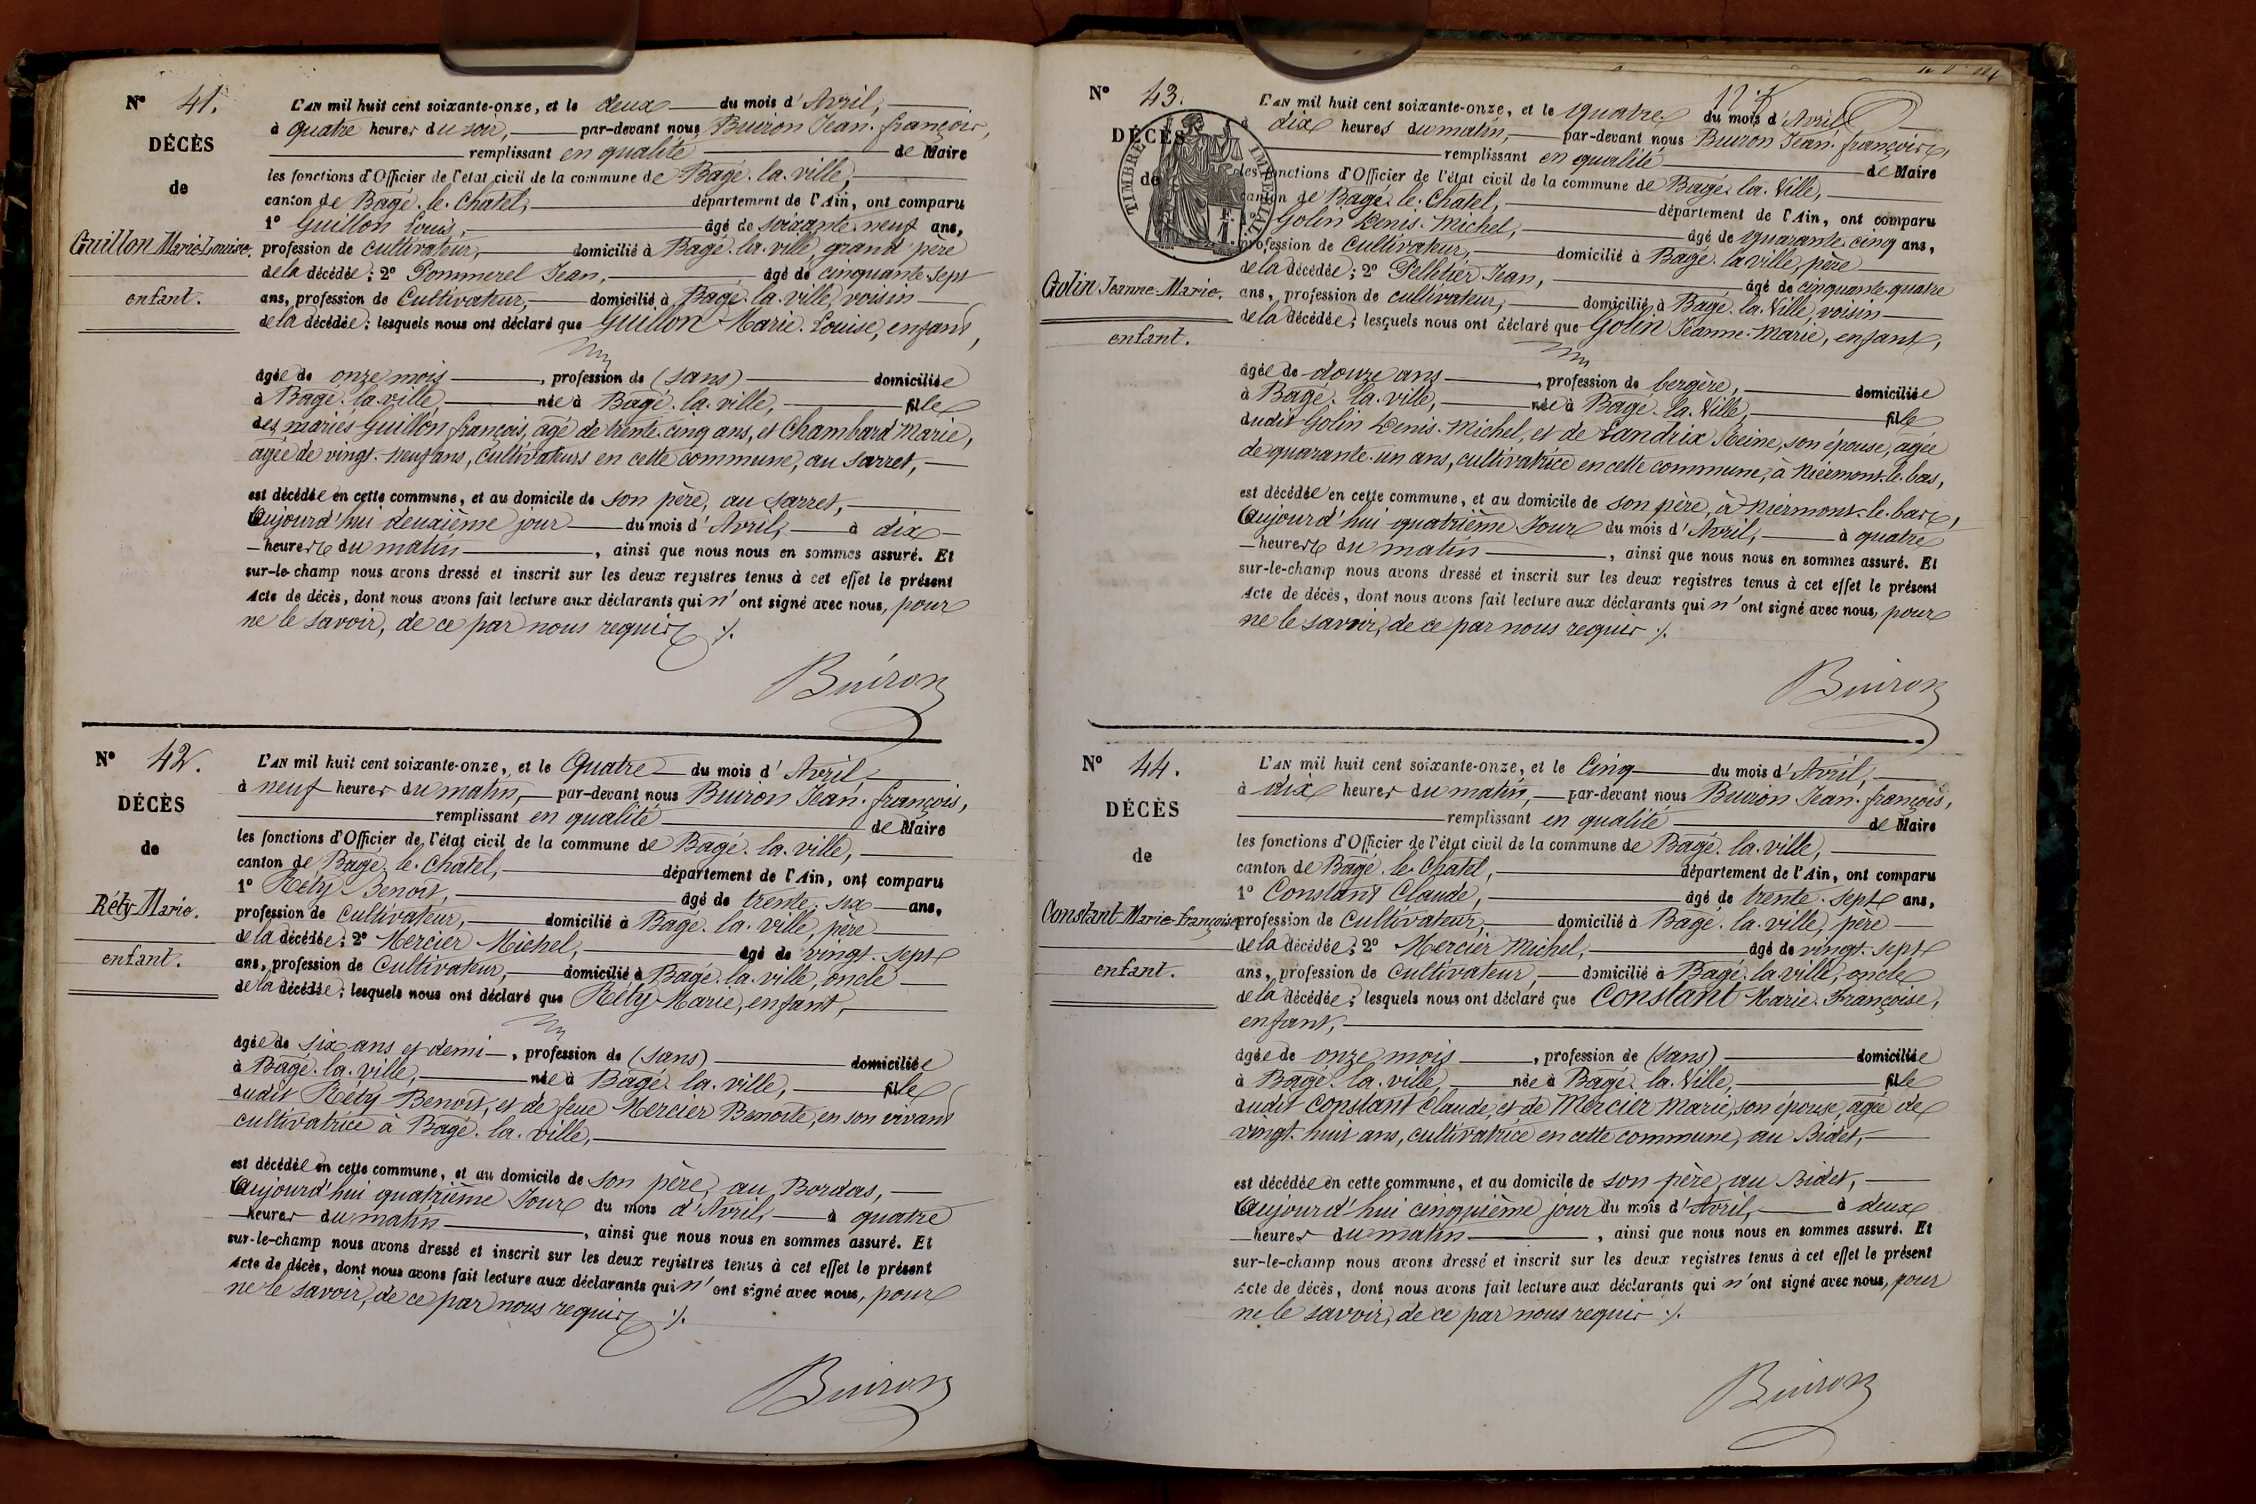 N° 41.
DÉCÈS
de
Guillon Marie Louise.
enfant.
L'AN mil huit cent soixante-onze, et le deux du mois d'Avril,
à quatre heures du soir, par-devant nous Buiron Jean-françois,
remplissant en qualité de Maire
les fonctions d'Officier de l'état civil de la commune de Bagé-la-ville,
canton de Bagé-le-Chatel, département de l'Ain, ont comparu
1° Guillon Louis, âgé de soixante neuf ans,
profession de cultivateur, domicilié à Bagé-la-ville, grand père
de la décédée; 2° Pommerel Jean, âgé de cinquante-sept
ans, profession de Cultivateur, domicilié à Bagé-la-ville, voisin
de la décédée; lesquels nous ont déclaré que Guillon Marie-Louise, enfant,
âgée de onze mois, profession de (sans) domiciliée
à Bagé-la-ville née à Bagé-la-ville, fille
des mariés Guillon françois, âgé de trente-cinq ans, et Chambard Marie,
agée de vingt-neuf ans, cultivateurs en cette commune, au Sarret,
est décédée en cette commune, et au domicile de son père, au Sarret,
Aujourd'hui deuxième jour du mois d'Avril, à dix
heures du matin, ainsi que nous nous en sommes assuré. Et
sur-le-champ nous avons dressé et inscrit sur les deux registres tenus à cet effet le présent
Acte de décès, dont nous avons fait lecture aux déclarants qui n'ont signé avec nous, pour
ne le savoir, de ce par nous requis ./.
Buiron
N° 42.
DÉCÈS
de
Réty Marie.
enfant.
L'AN mil huit cent soixante-onze, et le Quatre du mois d'Avril,
à neuf heures du matin, par-devant nous Buiron Jean-françois,
remplissant en qualité de Maire
les fonctions d'Officier de l'état civil de la commune de Bagé-la-ville,
canton de Bagé-le-Chatel, département de l'Ain, ont comparu
1° Réty Benoit, âgé de trente-six ans,
profession de Cultivateur, domicilié à Bagé-la-ville, père
de la décédée; 2° Mercier Michel, âgé de vingt-sept
ans, profession de Cultivateur, domicilié à Bagé-la-ville, oncle
de la décédée; lesquels nous ont déclaré que Réty Marie, enfant,
âgée de six ans et demi, profession de (sans) domiciliée
à Bagé-la-ville, née à Bagé-la-ville, fille
dudit Réty Benoit, et de feue Mercier Benoite, en son vivant
cultivatrice à Bagé-la-ville,
est décédée en cette commune, et au domicile de son père, au Bordas,
Aujourd'hui quatrième Jour du mois d'Avril, à quatre
heures du matin, ainsi que nous nous en sommes assuré. Et
sur-le-champ nous avons dressé et inscrit sur les deux registres tenus à cet effet le présent
Acte de décès, dont nous avons fait lecture aux déclarants qui n'ont signé avec nous, pour
ne le savoir, de ce par nous requis ./.
Buiron
N° 43.
DÉCÈS
de
TIMBRE IMPERIAL
Golin Jeanne-Marie.
enfant.
L'AN mil huit cent soixante-onze, et le quatre du mois d'Avril
à dix heures du matin, par-devant nous Buiron Jean-françois,
remplissant en qualité de Maire
les fonctions d'Officier de l'état civil de la commune de Bagé-la-Ville,
canton de Bagé-le-Chatel, département de l'Ain, ont comparu
Golin Denis-Michel, âgé de quarante-cinq ans,
profession de Cultivateur, domicilié à Bagé-la ville, père
de la décédée; 2° Pelletier Jean, âgé de cinquante quatre
ans, profession de cultivateur, domicilié à Bagé-la-Ville, voisin
de la décédée; lesquels nous ont déclaré que Golin Jeanne-Marie, enfant,
âgée de douze ans, profession de bergère, domiciliée
à Bagé-la-ville, née à Bagé-la-Ville, fille
dudit Golin Denis-Michel, et de Landrix Reine, son épouse, agée
de quarante-un ans, cultivatrice en cette commune, à Niermont-le-bas,
est décédée en cette commune, et au domicile de son père, à Niermont-le-bas,
Aujourd'hui quatrième Jour du mois d'Avril, à quatre
heures du matin, ainsi que nous nous en sommes assuré. Et
sur-le-champ nous avons dressé et inscrit sur les deux registres tenus à cet effet le présent
Acte de décès, dont nous avons fait lecture aux déclarants qui n'ont signé avec nous, pour
ne le savoir, de ce par nous requis ./.
Buiron
N° 44.
DÉCÈS
de
Constant Marie-françoise
enfant.
L'AN mil huit cent soixante-onze, et le Cinq du mois d'Avril,
à dix heures du matin, par-devant nous Buiron Jean-françois,
remplissant en qualité de Maire
les fonctions d'Officier de l'état civil de la commune de Bagé-la-ville,
canton de Bagé-le-Chatel, département de l'Ain, ont comparu
1° Constant Claude, âgé de trente-sept ans,
profession de Cultivateur, domicilié à Bagé-la-ville, père
de la décédée; 2° Mercier Michel, âgé de vingt-sept
ans, profession de Cultivateur, domicilié à Bagé-la-ville, oncle
de la décédée; lesquels nous ont déclaré que Constant Marie-Françoise,
enfant,
âgée de onze mois, profession de (sans) domiciliée
à Bagé-la-ville, née à Bagé-la-Ville, fille
dudit Constant Claude, et de Mercier Marie, son épouse, agée de
vingt-huit ans, cultivatrice en cette commune, au Bidet,
est décédée en cette commune, et au domicile de son père, au Bidet,
Aujourd'hui cinquième jour du mois d'Avril, à deux
heures du matin, ainsi que nous nous en sommes assuré. Et
sur-le-champ nous avons dressé et inscrit sur les deux registres tenus à cet effet le présent
Acte de décès, dont nous avons fait lecture aux déclarants qui n'ont signé avec nous, pour
ne le savoir, de ce par nous requis ./.
Buiron